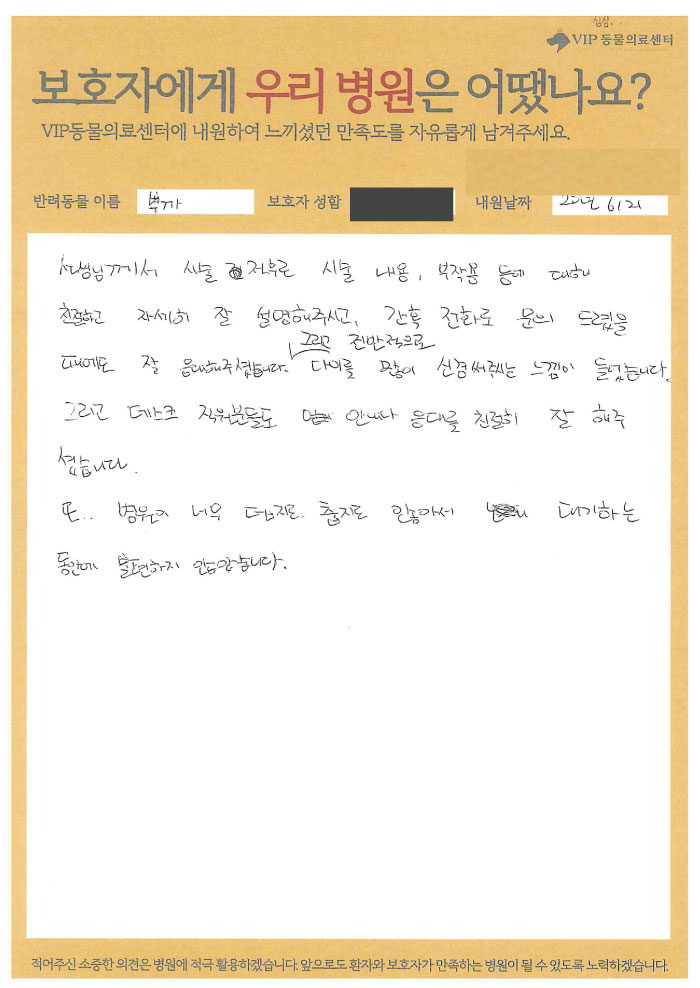 심심...
VIP 동물의료센터
보호자에게 우리 병원은 어땠나요?
VIP동물의료센터에 내원하여 느끼셨던 만족도를 자유롭게 남겨주세요.
반려동물 이름 보호자 성함 내원날짜 6/21
선생님께서 시술 전후로 시술 내용, 부작용 등에 대해
친절하고 자세히 잘 설명해주시고, 간혹 전화로 문의 드렸을
때에도 잘 응대해주셨습니다. 그리고 전반적으로 다이를 많이 신경써주시는 느낌이 들었습니다.
그리고 데스크 직원분들도 안내나 응대를 친절히 잘 해주
셨습니다.
또.. 병원이 너무 덥지도 춥지도 않아서 대기하는
동안에 불편하지 않았습니다.
적어주신 소중한 의견은 병원에 적극 활용하겠습니다. 앞으로도 환자와 보호자가 만족하는 병원이 될 수 있도록 노력하겠습니다.